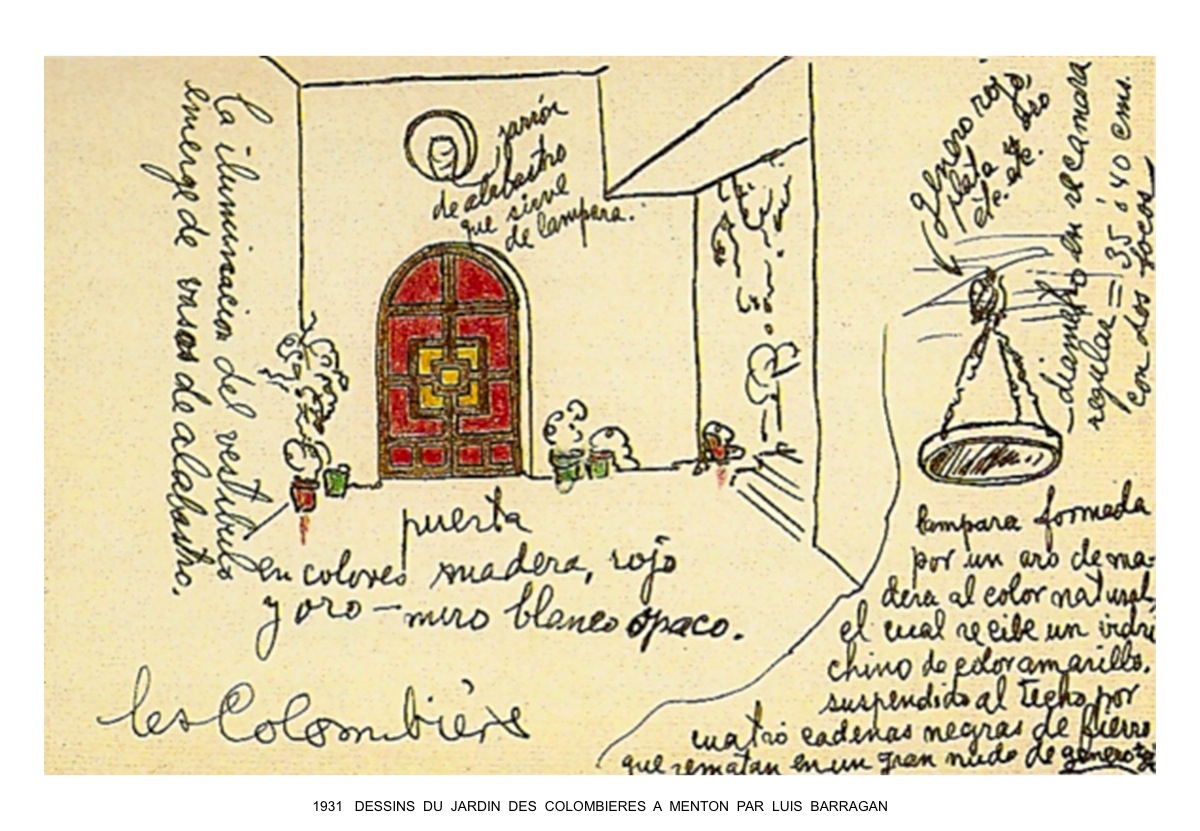 La iluminacion del vestibulo
emerge de vasos de alabastro.
jarrón
de alabastro
que sirve
de lampara.
puerta
en colores madera, rojo
y oro – muro blanco opaco.
les Colombière
genero rojo
plata u oro
etc. etc.
diametro en recamara
regular = 35 ó 40 cms.
con dos focos
lampara formada
por un aro de ma-
dera al color natural,
el cual recibe un vidri
chino de color amarillo.
suspendido al techo por
cuatro cadenas negras de fierro
que rematan en un gran nudo de genero
1931 DESSINS DU JARDIN DES COLOMBIERES A MENTON PAR LUIS BARRAGAN